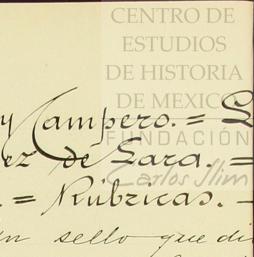 CENTRO DE
ESTUDIOS
DE HISTORIA
DE MEXICO
y Campero. = S
FUNDACIÓN
ez de Lara. =
Carlos Slim
. = Rubricas. -
un sello que di